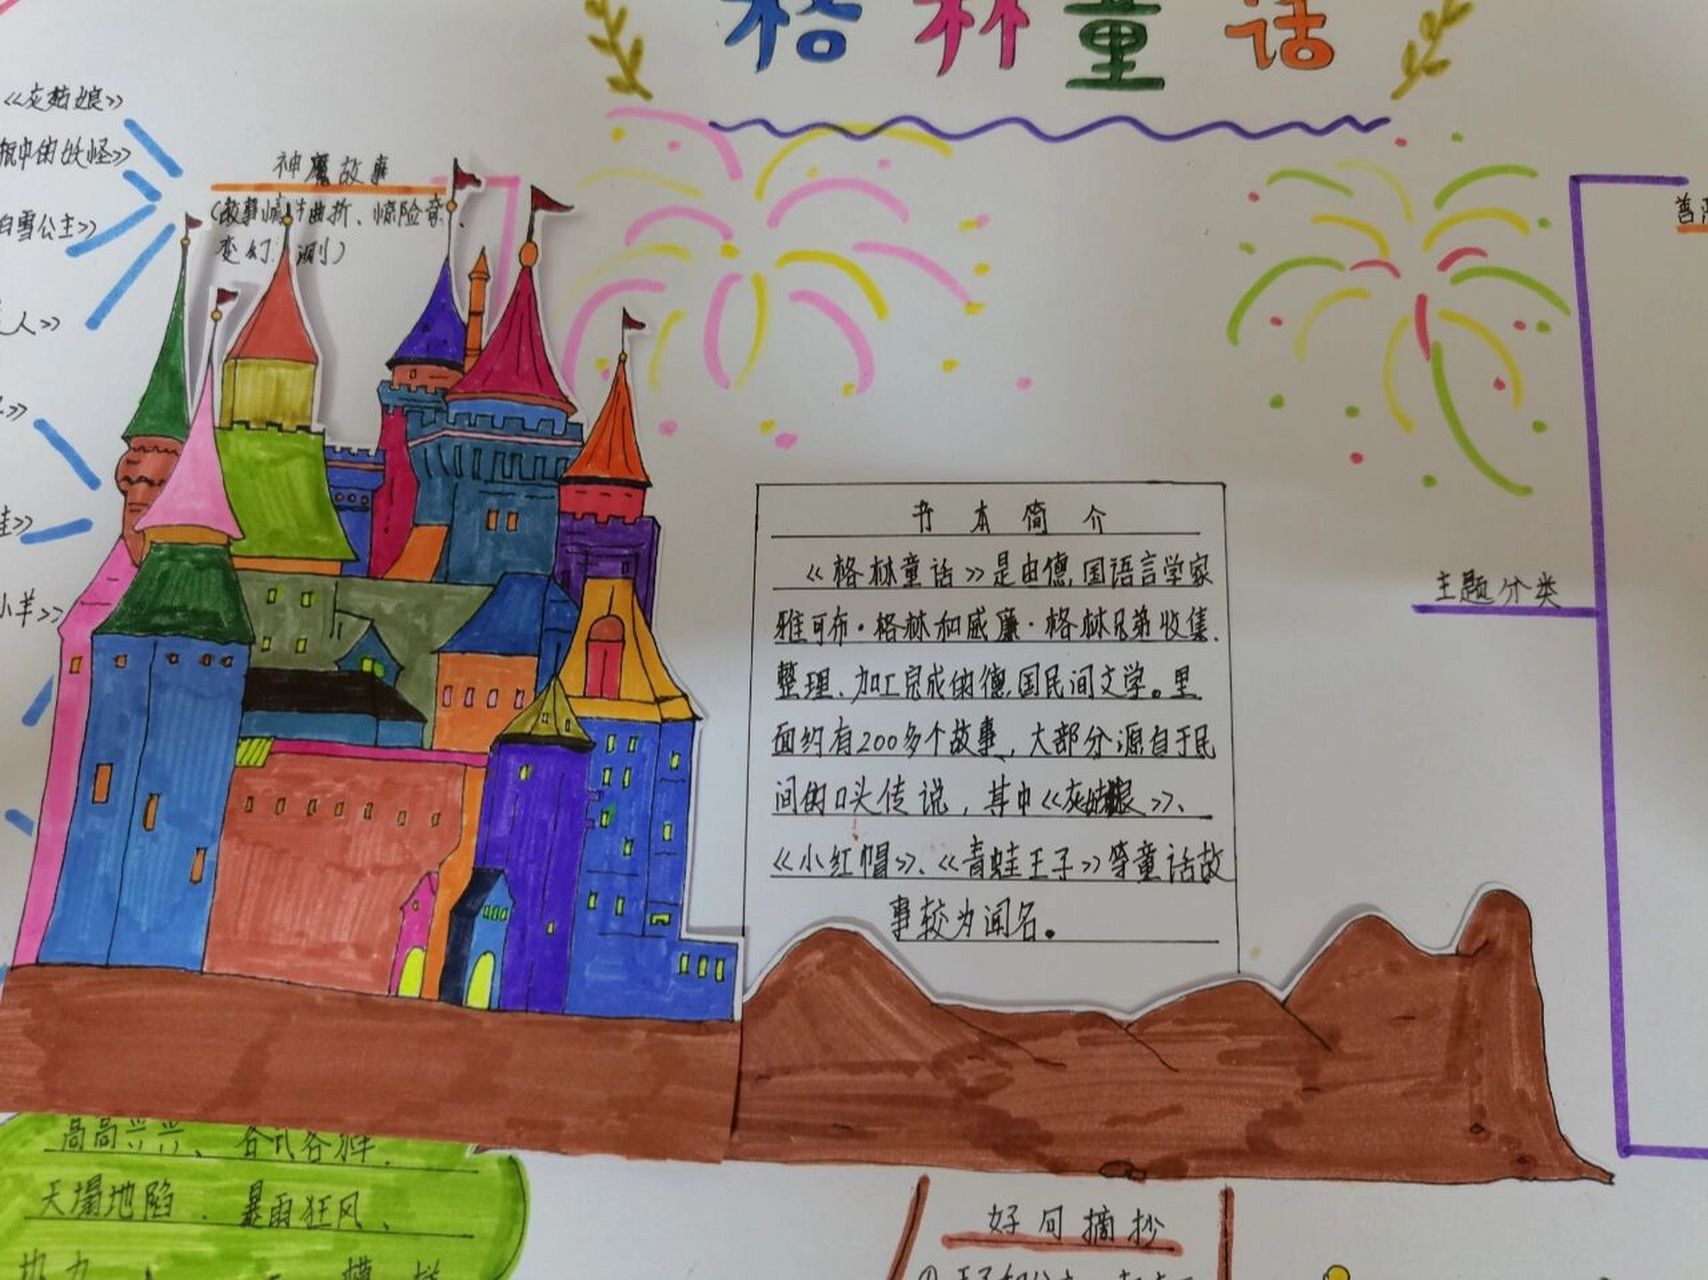 格林童话
《灰姑娘》
瓶中的妖怪》
白雪公主》
人》
》
蛙》
小羊》
神魔故事
(故事情节曲折、惊险奇
变幻 测)
书本简介
《格林童话》是由德国语言学家
雅可布·格林和威廉·格林兄弟收集、
整理、加工完成的德国民间文学。里
面约有200多个故事,大部分源自于民
间的口头传说,其中《灰姑娘》、
《小红帽》、《青蛙王子》等童话故
事较为闻名。
主题分类
善
高高兴兴、各式各样、
天塌地陷、暴雨狂风、
好句摘抄